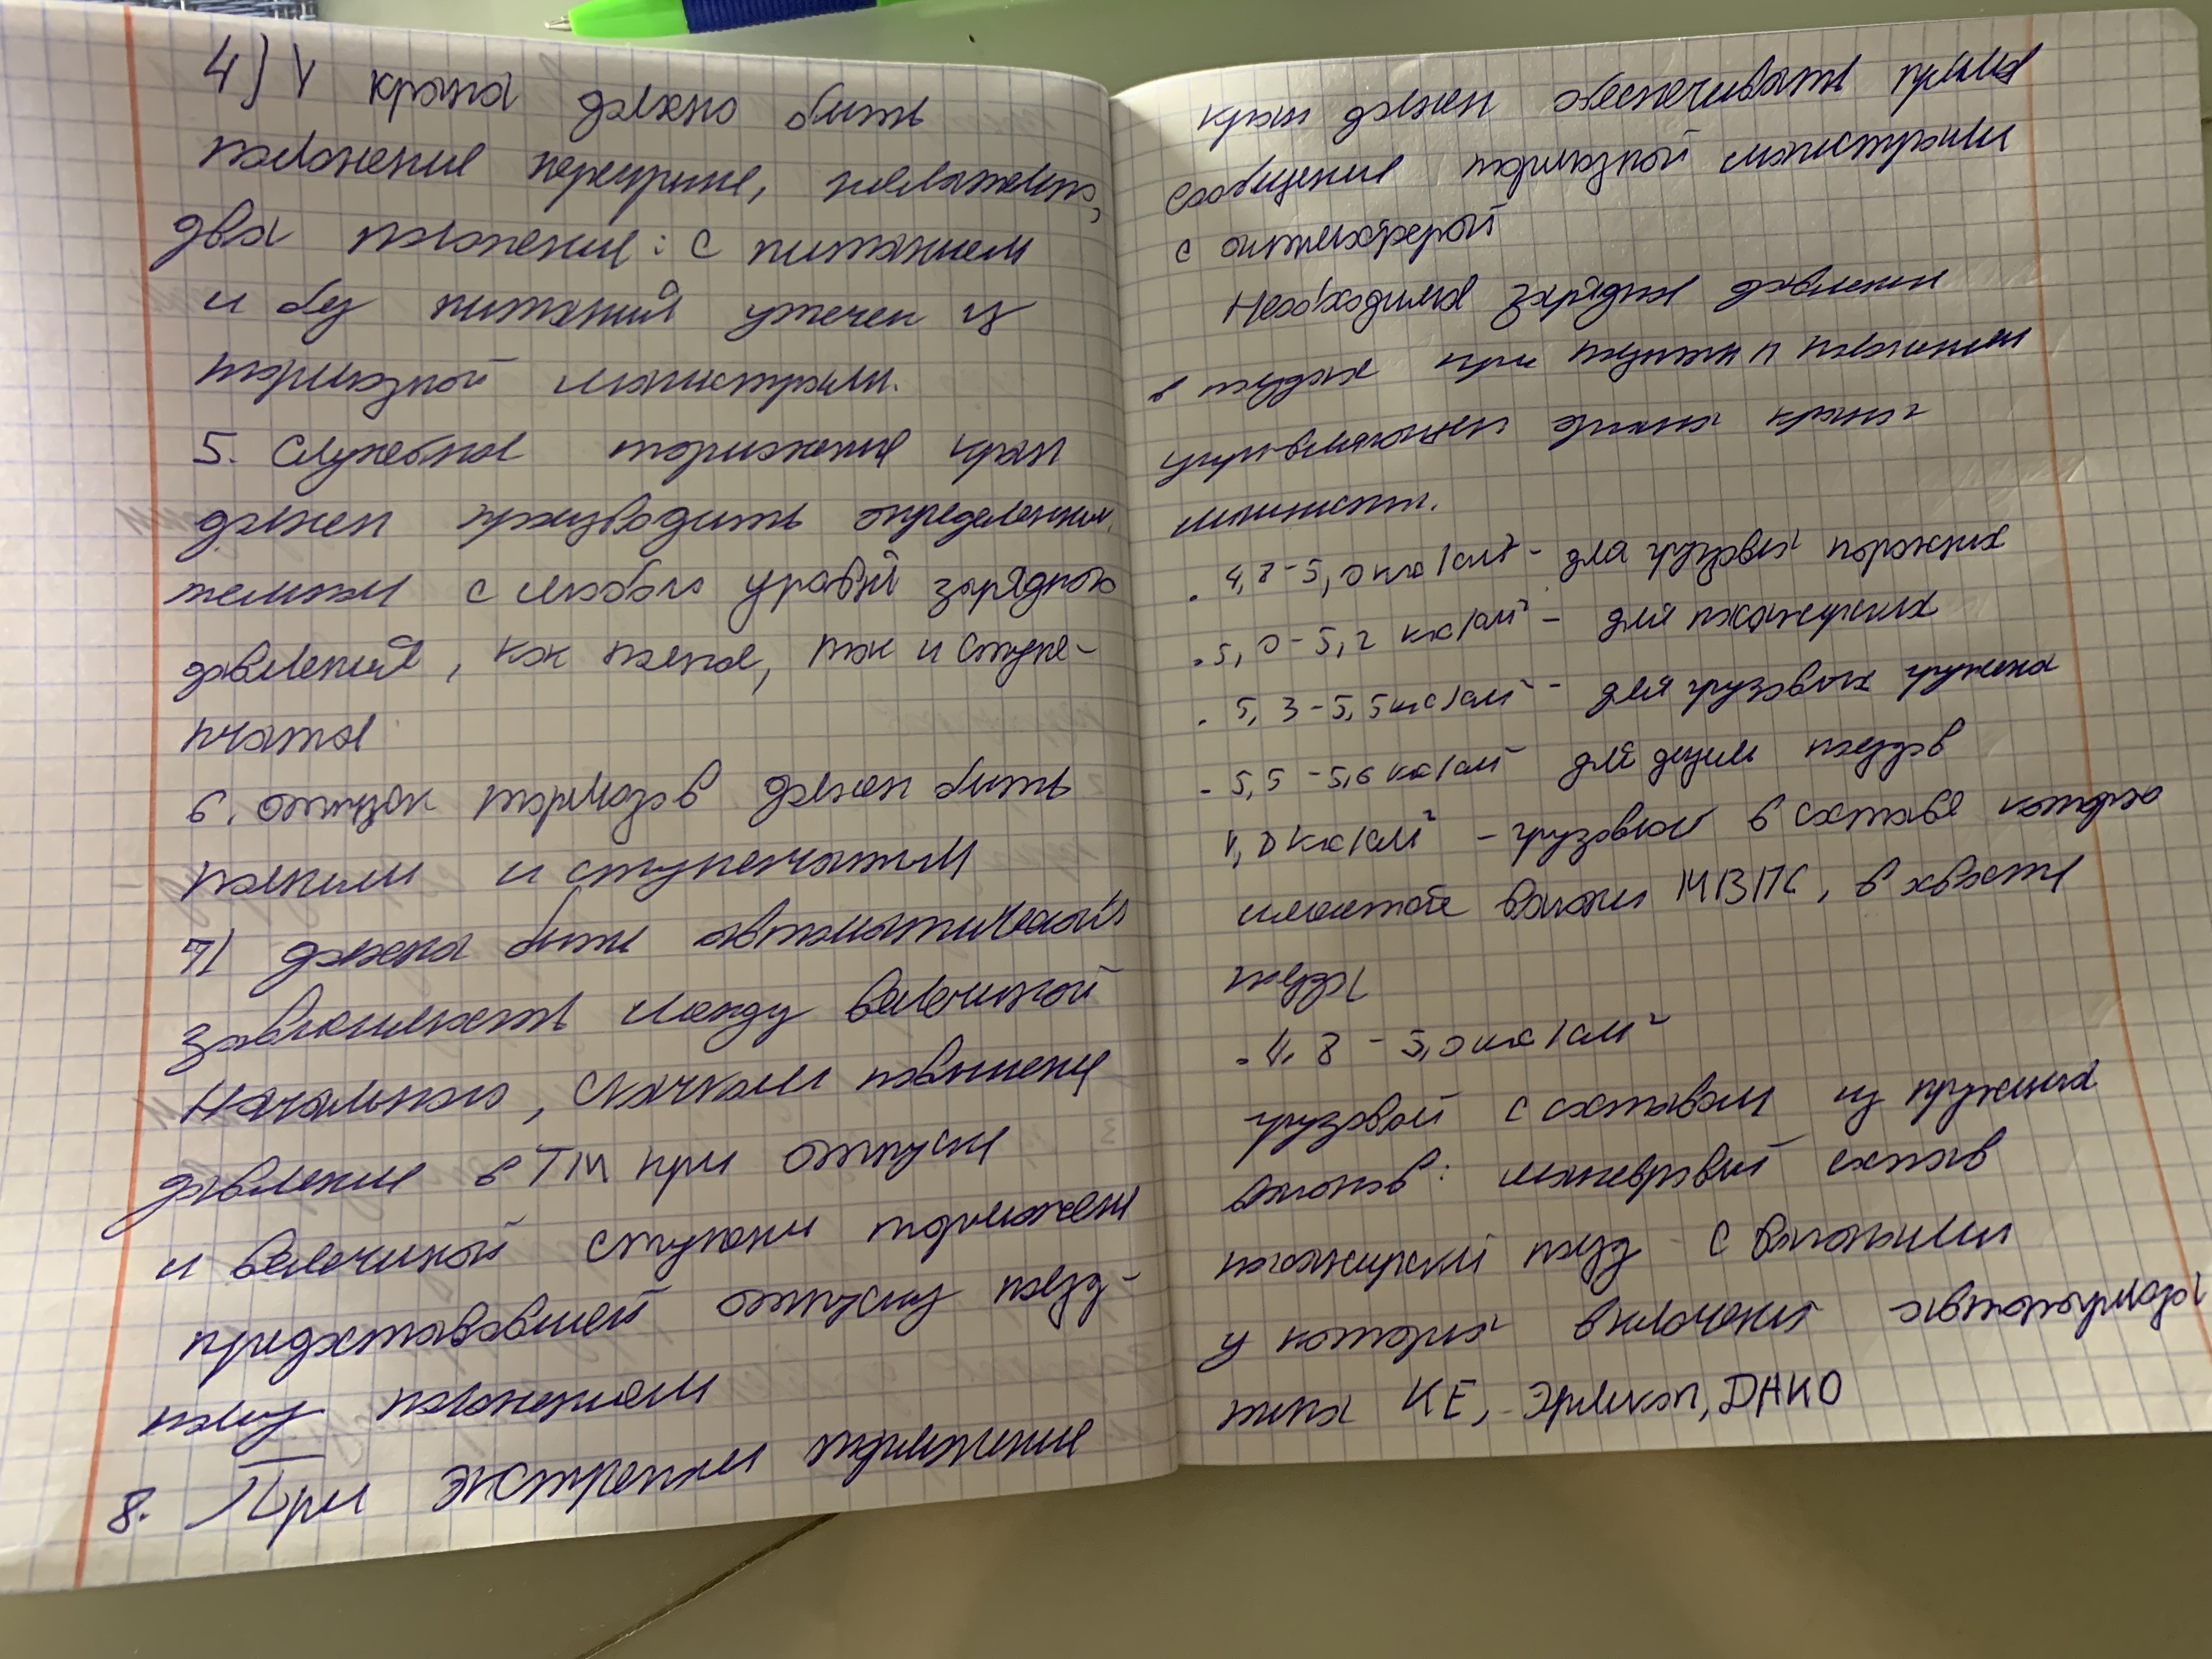 4) У крана должно быть
положение перекрыши, желательно,
два положения: с питанием
и без питаний утечек из
тормазной магистрали.
5. Служебное торможение кран
должен производить определенным
темпом с любого уравня зарядного
давления, как полное, так и ступе-
нчатое
6. отпуск тормазов должен быть
полным и ступенчатым
7) должна быть автоматическая
зависимость между величиной
Начального, скачком повышения
давления в ТМ при отпуске
и величиной ступени торможения
предшествовавшей отпуску поезд-
ному положением
8. При экстренном торможение
кран должен обеспечивать прямое
сообщение тормазной магистрали
с атмосферой
Необходимая зарядное давление
в поездах при поездном положением
управляющего крана
машинист.
- 4,8-5,0 кгс/см² - для грузовых порожних
- 5,0-5,2 кгс/см² - для пассажирских
- 5,3-5,5 кгс/см² - для грузовых гружена
- 5,5-5,6 кгс/см² для поездов
4,8 кгс/см² - грузовой в составе которо
вагоны МВПС, в хвосте
поезда
- 4,8 - 5,0 кгс/см²
грузовой с составом из груженых
вагонов: маневровый состав
пассажирский поезд с вагонами
у которых включены автотормоза
типа КЕ, Эрликон, ДАКО